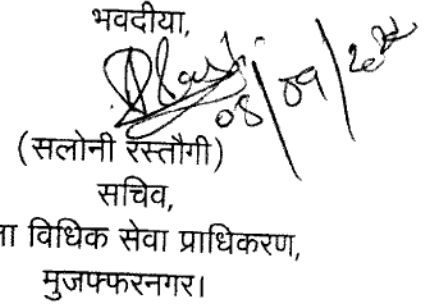 भवदीया,
08/09/
(सलोनी रस्तौगी)
सचिव,
विधिक सेवा प्राधिकरण,
मुजफ्फरनगर।